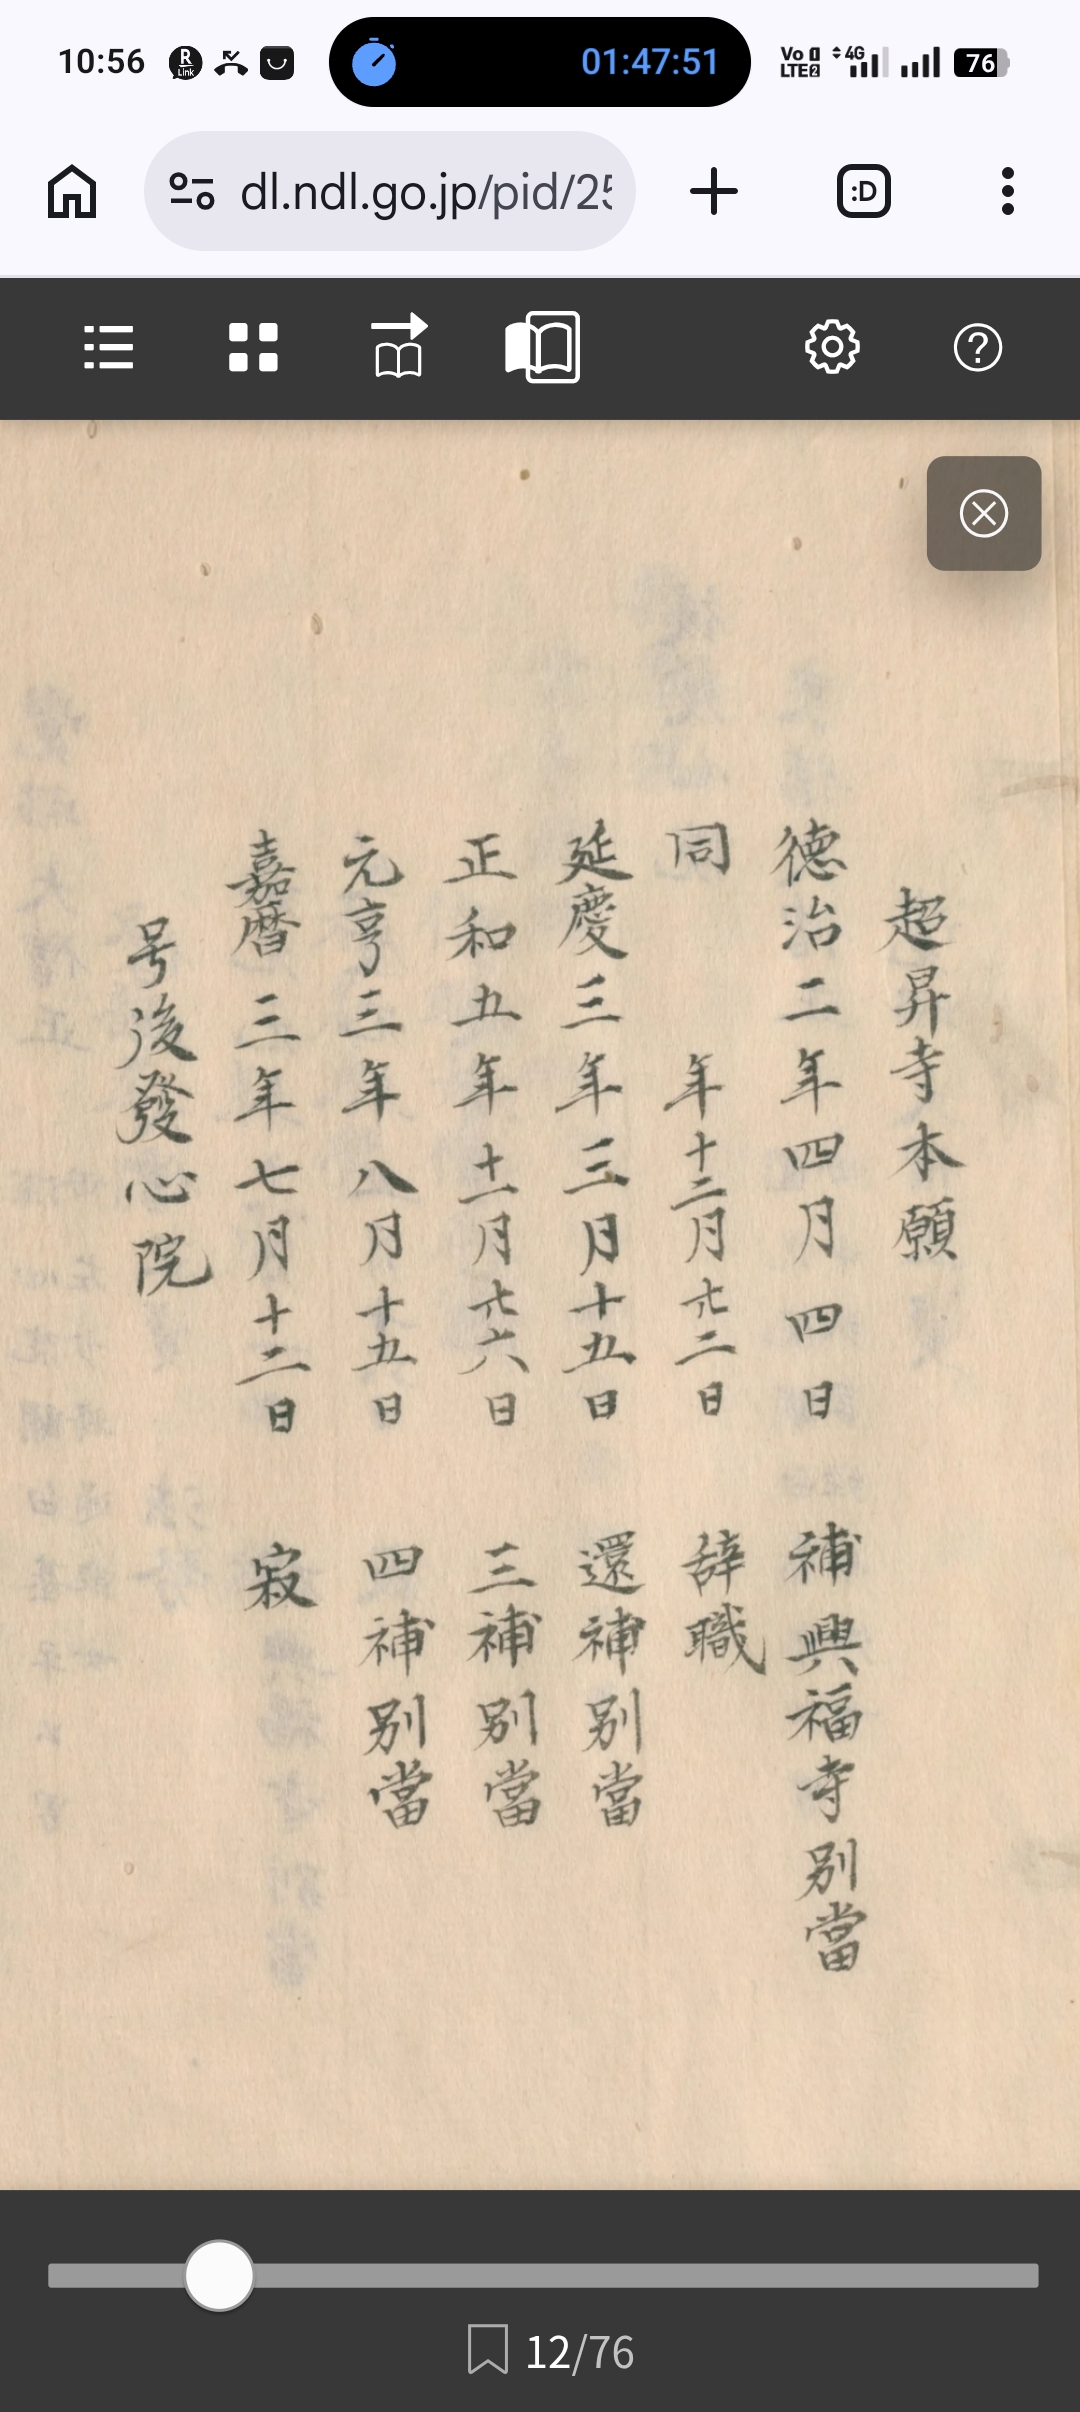 10:56
R Link
01:47:51
Vo LTE2
4G
76
dl.ndl.go.jp/pid/25
:D
超昇寺本願
德治二年四月四日 補興福寺別當
同 年十二月廿二日 辞職
延慶三年三月十五日 還補別當
正和五年十一月廿六日 三補別當
元亨三年八月十五日 四補別當
嘉暦三年七月十二日 寂
号後發心院
12/76